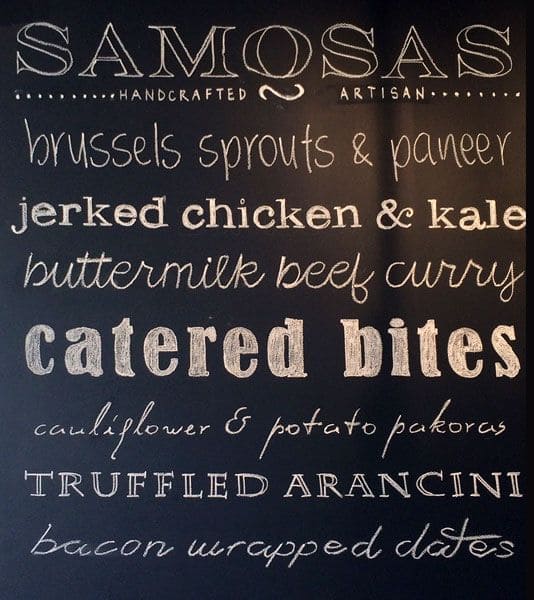 SAMOSAS
HANDCRAFTED ARTISAN
brussels sprouts & paneer
jerked chicken & kale
buttermilk beef curry
catered bites
cauliflower & potato pakoras
TRUFFLED ARANCINI
bacon wrapped dates